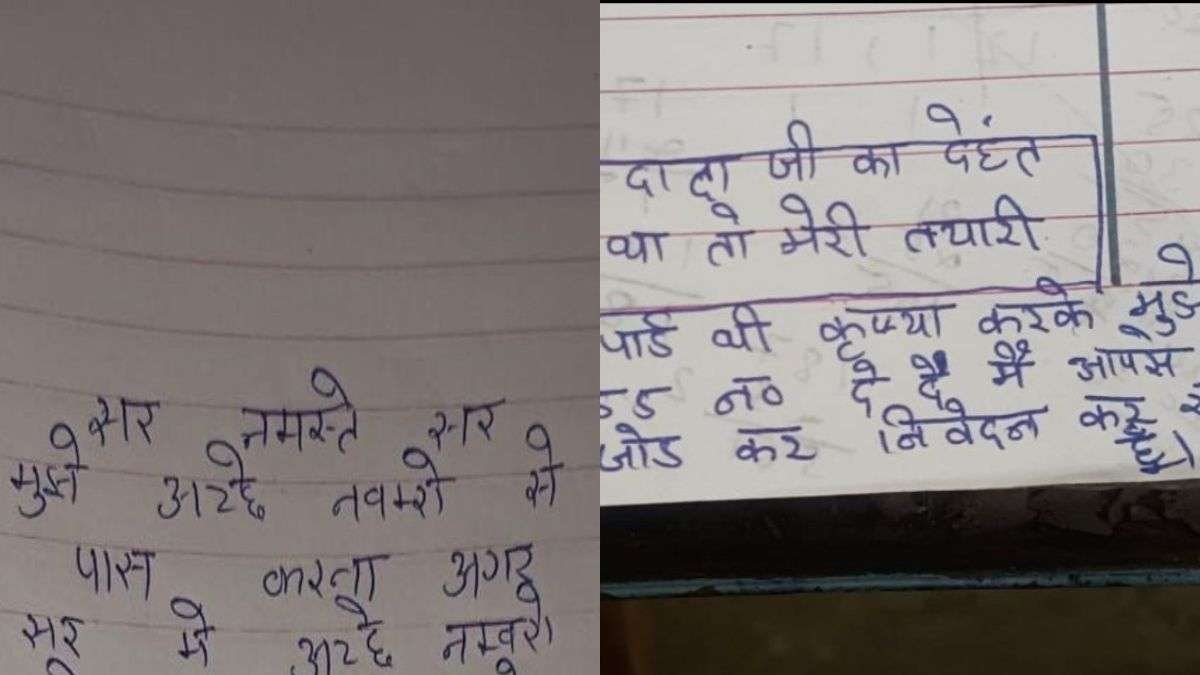 सर नमस्ते सर
मुझे अच्छे नवम्रो से
पास करना अगर
सर मे अच्छे नम्बरो
दादा जी का देहंत
तो मेरी तयारी
पाई थी कृप्या करके मुझे
नं० दे दे मैं आपसे
जोड कर निवेदन कर
है।